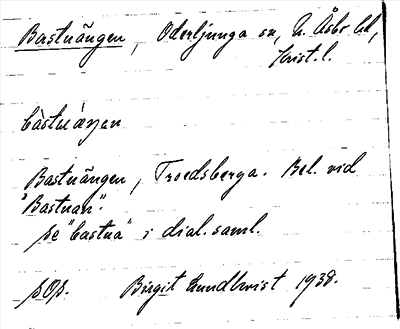 Bastuängen, Oderljunga sn, N. Åsbo hd,
Krist. l.
bàstuàŋən
Bastuängen, Troedsberga. Bel. vid
"Bastuan".
se "bastua" i dial. saml.
sOp. Birgit Lundkvist 1938.